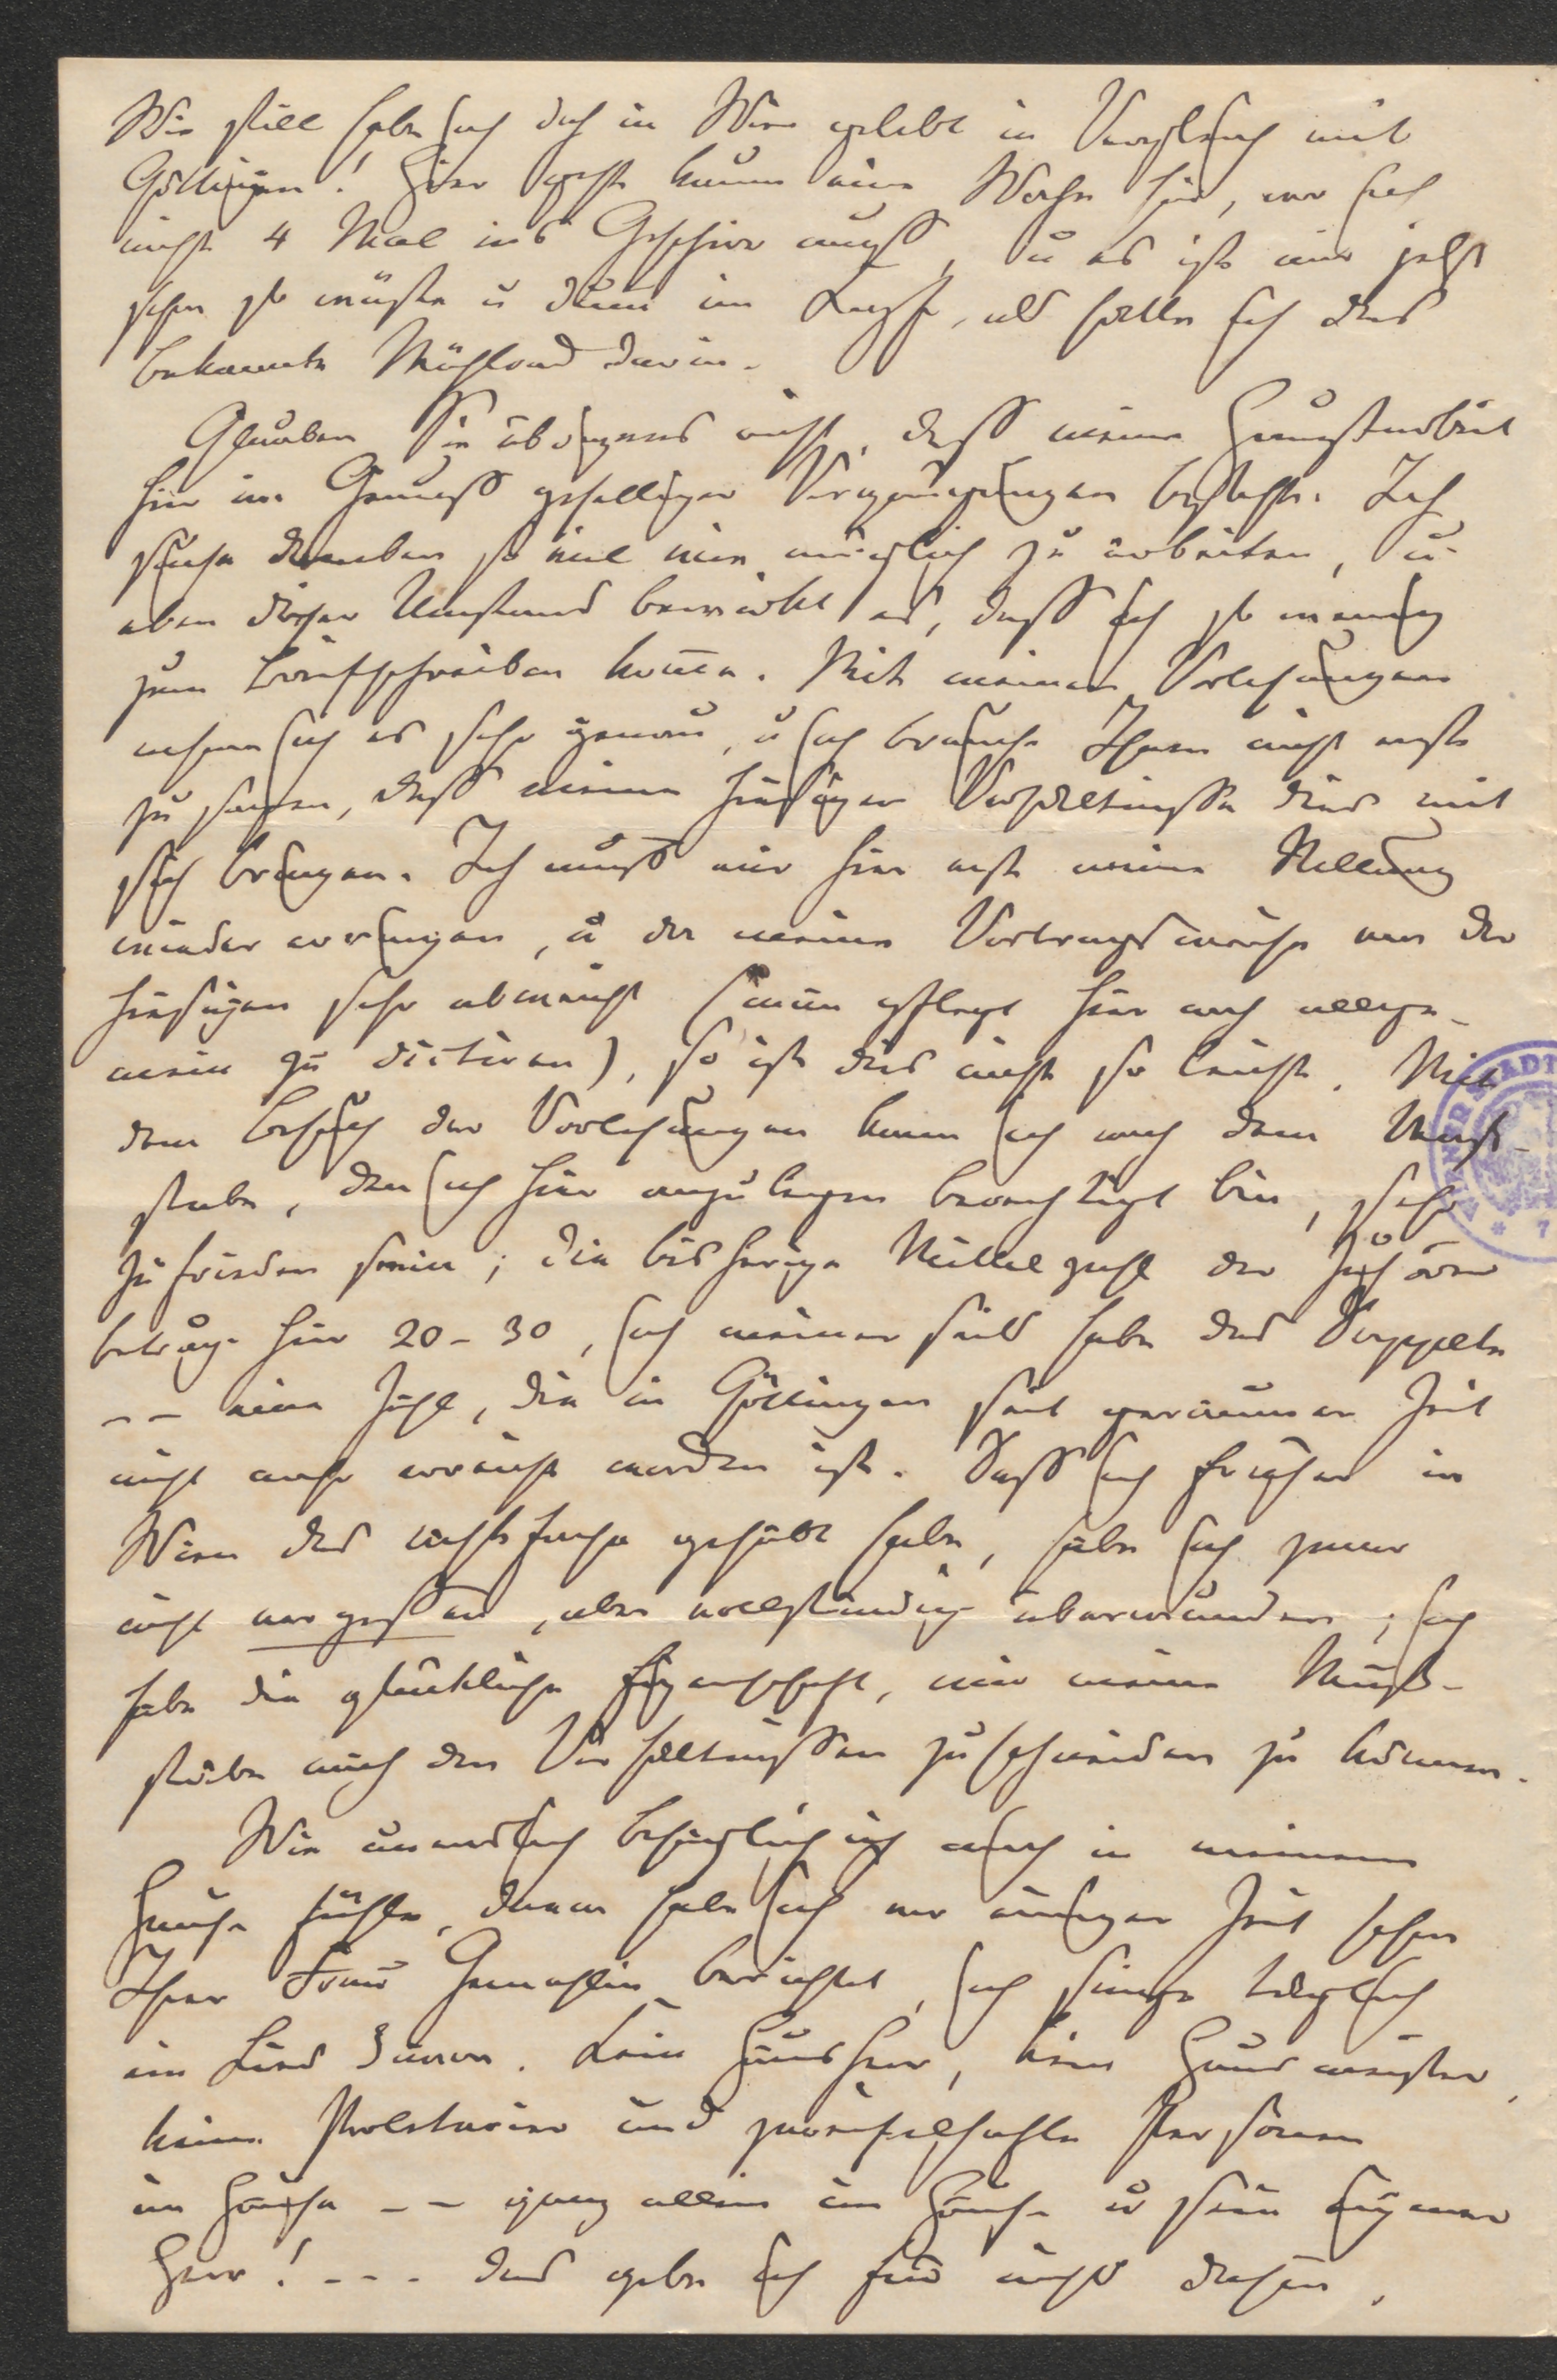 Wie still habe ich doch in Wien gelebt in Vergleich mit
Göttingen! Hier geht kaum eine Woche hin, wo ich
nicht 4 Mal ins Geschirr muß, u es ist mir jetzt
schon so wüste u dumm im Kopfe, als hätte ich das
bekannte Mühlrad darin.
Glauben Sie übrigens nicht, daß meine Hauptarbeit
hier im Genuß geselliger Vergnügungen bestehe. Ich
suche daneben so viel nur möglich zu arbeiten, u
eben dieser Umstand bewirkt es, daß ich so wenig
zum Briefschreiben komme. Mit meinen Vorlesungen
nehme ich es sehr genau, u ich brauche Ihnen nicht erst
zu sagen, daß meine hiesigen Verhältnisse dies mit
sich bringen. Ich muß mir hier erst meine Stellung
wieder erringen, u da meine Vortragsweise von der
hiesigen sehr abweicht (man pflegt hier noch allge-
mein zu dictiren), so ist dies nicht so leicht. Mit
dem Besuch der Vorlesungen kann ich nach dem Maß-
stabe, den ich hier anzulegen berechtigt bin, sehr
zufrieden sein; die bisherige Mittelzahl der Zuhörer
betrug hier 20-30, ich meinerseits habe das Doppelte
-- eine Zahl, die in Göttingen seit geraumer Zeit
nicht mehr erreicht worden ist. Daß ich früher in
Wien das achtfache gehabt habe, habe ich zwar
nicht vergessen, aber vollständig überwunden; ich
habe die glückliche Eigenschaft, mir meine Maß-
stäbe nach den Verhältnissen zuschneiden zu können.
Wie unendlich behaglich ich mich in meinem
Hause fühle, davon habe ich vor einiger Zeit schon
Ihrer Frau Gemahlin berichtet, ich singe täglich
ein Lied davon. Kein Hausherr, kein Hausmeister,
keine Proletarier und zweifelhafte Personen
im Hause -- ganz allein im Hause u sein eigener
Herr! --- das gebe ich für nichts
WIENER STADT
* 7